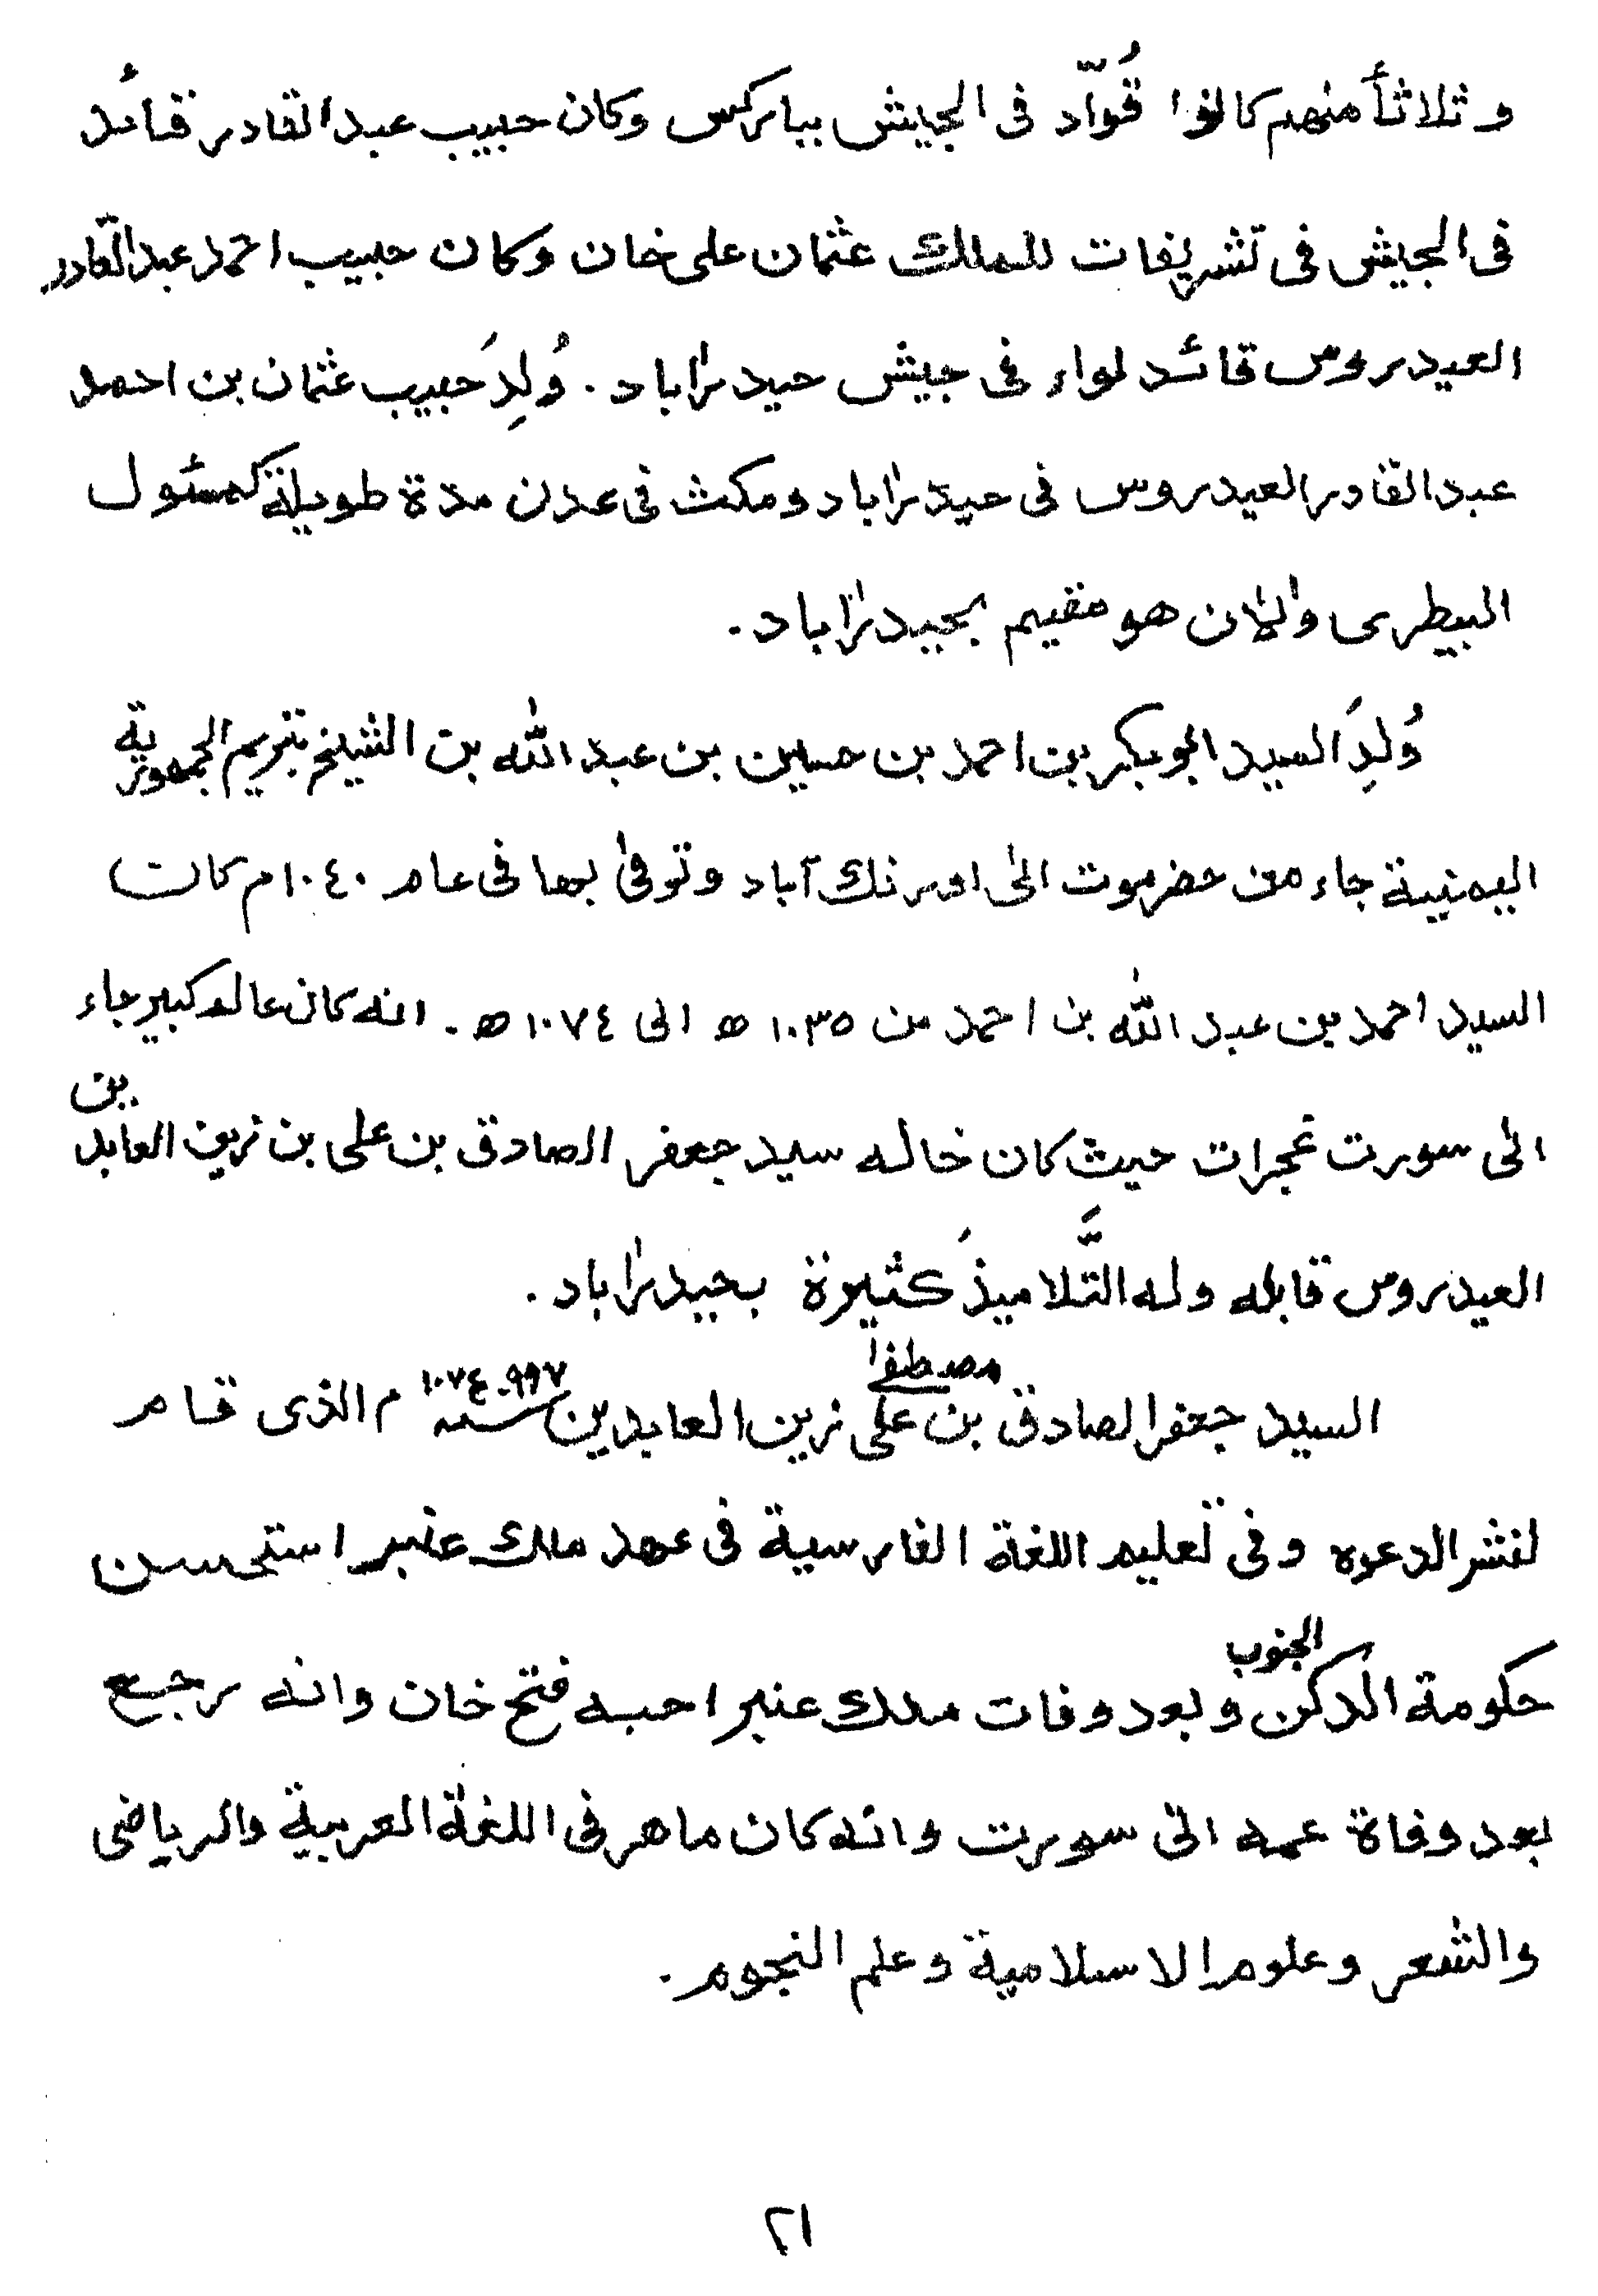 وثلاثاً منهم كانوا قُوّاد فى الجيش بباركس وكان حبيب عبد القادر قائد
فى الجيش فى تشريفات للملك عثمان على خان وكان حبيب احمد عبد القادر
العيدروس قائد لواء فى جيش حيدراباد. وُلِدَ حبيب عثمان بن احمد
عبد القادر العيدروس فى حيدراباد ومكث فى عدن مدة طويلة كمسئول
البيطرى والأن هو مقيم بحيدراباد.
وُلِدَ السيد ابو بكر بن احمد بن حسين بن عبد الله بن الشيخ بتريم الجمهورية
اليمنية جاء من حضرموت الى اورنك آباد وتوفى بها فى عام ١٠٤٠م كان
السيد احمد بن عبد الله بن احمد من ١٠٣٥ ھ الى ١٠٧٤ ھ. انه كان عالم كبير جاء
الى سورت غجرات حيث كان خاله سيد جعفر الصادق بن على بن زين العابد ين
العيدروس قابله وله التَّلاميذَ كثيرة بحيدراباد.
السيد جعفر الصادق بن على مصطفا زين العابدين سنه ٩٩٧-١٠٧٤ م الذى قام
لنشر الدعوه وفى تعليم اللغة الفارسية فى عهد ملك عنبر استحسن
حكومة الدكن الجنوب وبعد وفات ملك عنبر احبه فتح خان وانه رجع
بعد وفاة عمه الى سورت وانه كان ماهر فى اللغة العربية والرياضى
والشعر وعلوم الاسلامية وعلم النجوم.
٢١